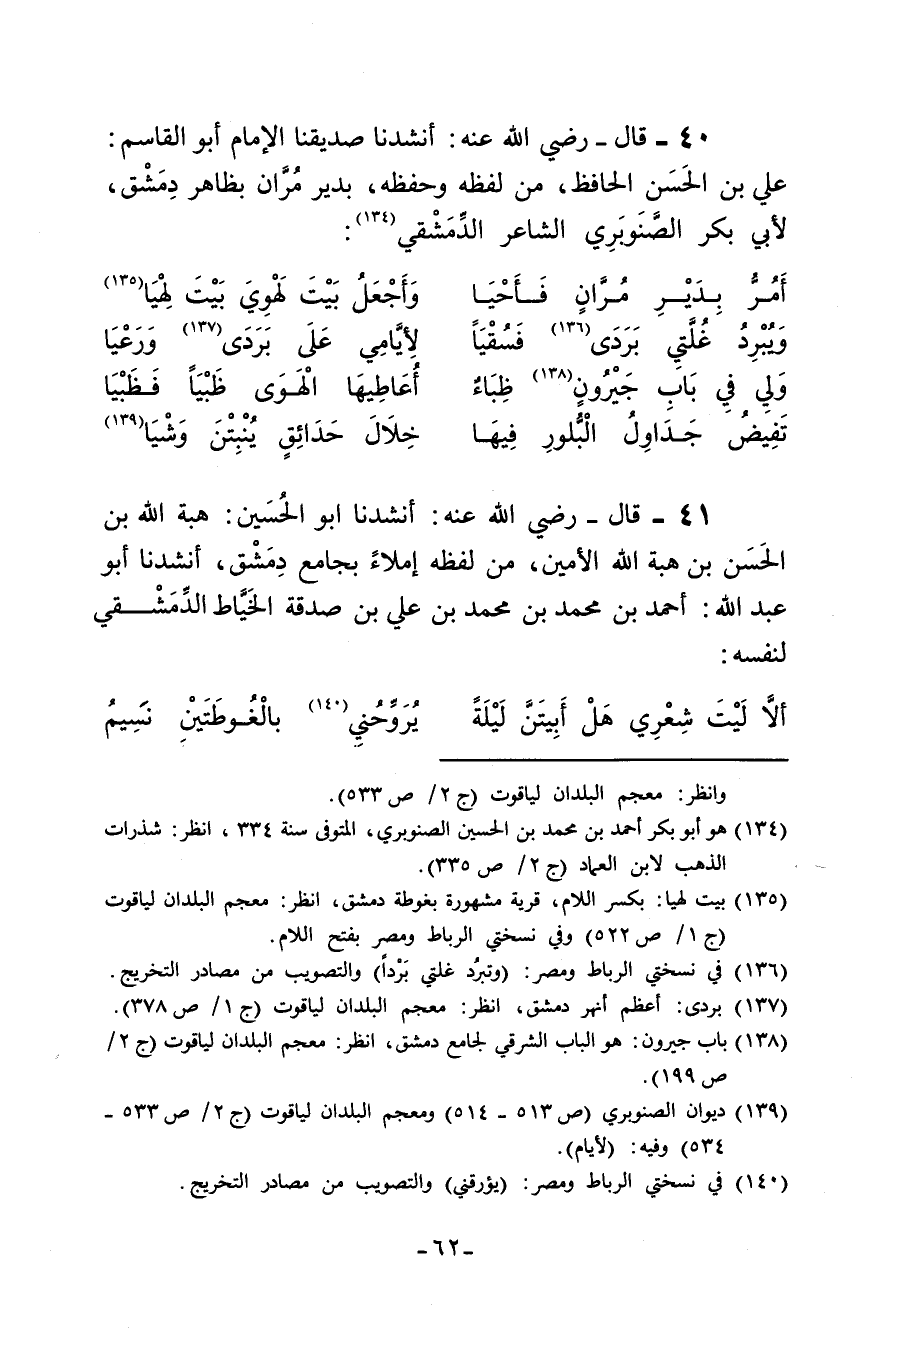 ٤٠ - قال - رضي الله عنه: أنشدنا صديقنا الإمام أبو القاسم:
علي بن الحَسَن الحافظ، من لفظه وحفظه، بدير مُرَّان بظاهر دِمَشْق،
لأبي بكر الصَّنَوبَرِي الشاعر الدِّمَشْقي(١٣٤):
أَمُرُّ بِدَيْرِ مُرَّانٍ فَأَحْيَا وَأَجْعَلُ بَيْتَ لَهْوِيَ بَيْتَ لِهْيَا(١٣٥)
وَيُبْرِدُ غُلَّتِي بَرَدَى(١٣٦) فَسُقْيَاً لِأَيَّامِي عَلَى بَرَدَى(١٣٧) وَرَعْيَا
وَلِي فِي بَابِ جَيْرُونٍ(١٣٨) ظِبَاءٌ أُعَاطِيهَا الْهَوَى ظَبْيَاً فَظَبْيَا
تَفِيضُ جَدَاوِلُ الْبُلُورِ فِيهَا خِلَالَ حَدَائِقٍ يُنْبِتْنَ وَشْيَا(١٣٩)
٤١ - قال - رضي الله عنه: أنشدنا ابو الحُسَين: هبة الله بن
الحَسَن بن هبة الله الأمين، من لفظه إملاءً بجامع دِمَشْق، أنشدنا أبو
عبد الله: أحمد بن محمد بن محمد بن علي بن صدقة الخيَّاط الدِّمَشْقي
لنفسه:
أَلَّا لَيْتَ شِعْرِي هَلْ أَبِيتَنَّ لَيْلَةً يُرَوِّحُنِي(١٤٠) بالْغُوطَتَيْنِ نَسِيمُ
وانظر: معجم البلدان لياقوت (ج ٢/ ص ٥٣٣).
(١٣٤) هو أبو بكر أحمد بن محمد بن الحسين الصنوبري، المتوفى سنة ٣٣٤ ، انظر: شذرات
الذهب لابن العماد (ج ٢/ ص ٣٣٥).
(١٣٥) بيت لهيا: بكسر اللام، قرية مشهورة بغوطة دمشق، انظر: معجم البلدان لياقوت
(ج ١/ ص ٥٢٢) وفي نسختي الرباط ومصر بفتح اللام.
(١٣٦) في نسختي الرباط ومصر: (وتبرُد غلتي بَرْداً) والتصويب من مصادر التخريج.
(١٣٧) بردى: أعظم أنهر دمشق، انظر: معجم البلدان لياقوت (ج ١/ ص ٣٧٨).
(١٣٨) باب جيرون: هو الباب الشرقي لجامع دمشق، انظر: معجم البلدان لياقوت (ج ٢/
ص ١٩٩).
(١٣٩) ديوان الصنوبري (ص ٥١٣ - ٥١٤) ومعجم البلدان لياقوت (ج ٢/ ص ٥٣٣ -
٥٣٤) وفيه: (لأيام).
(١٤٠) في نسختي الرباط ومصر: (يؤرقني) والتصويب من مصادر التخريج.
-٦٢-